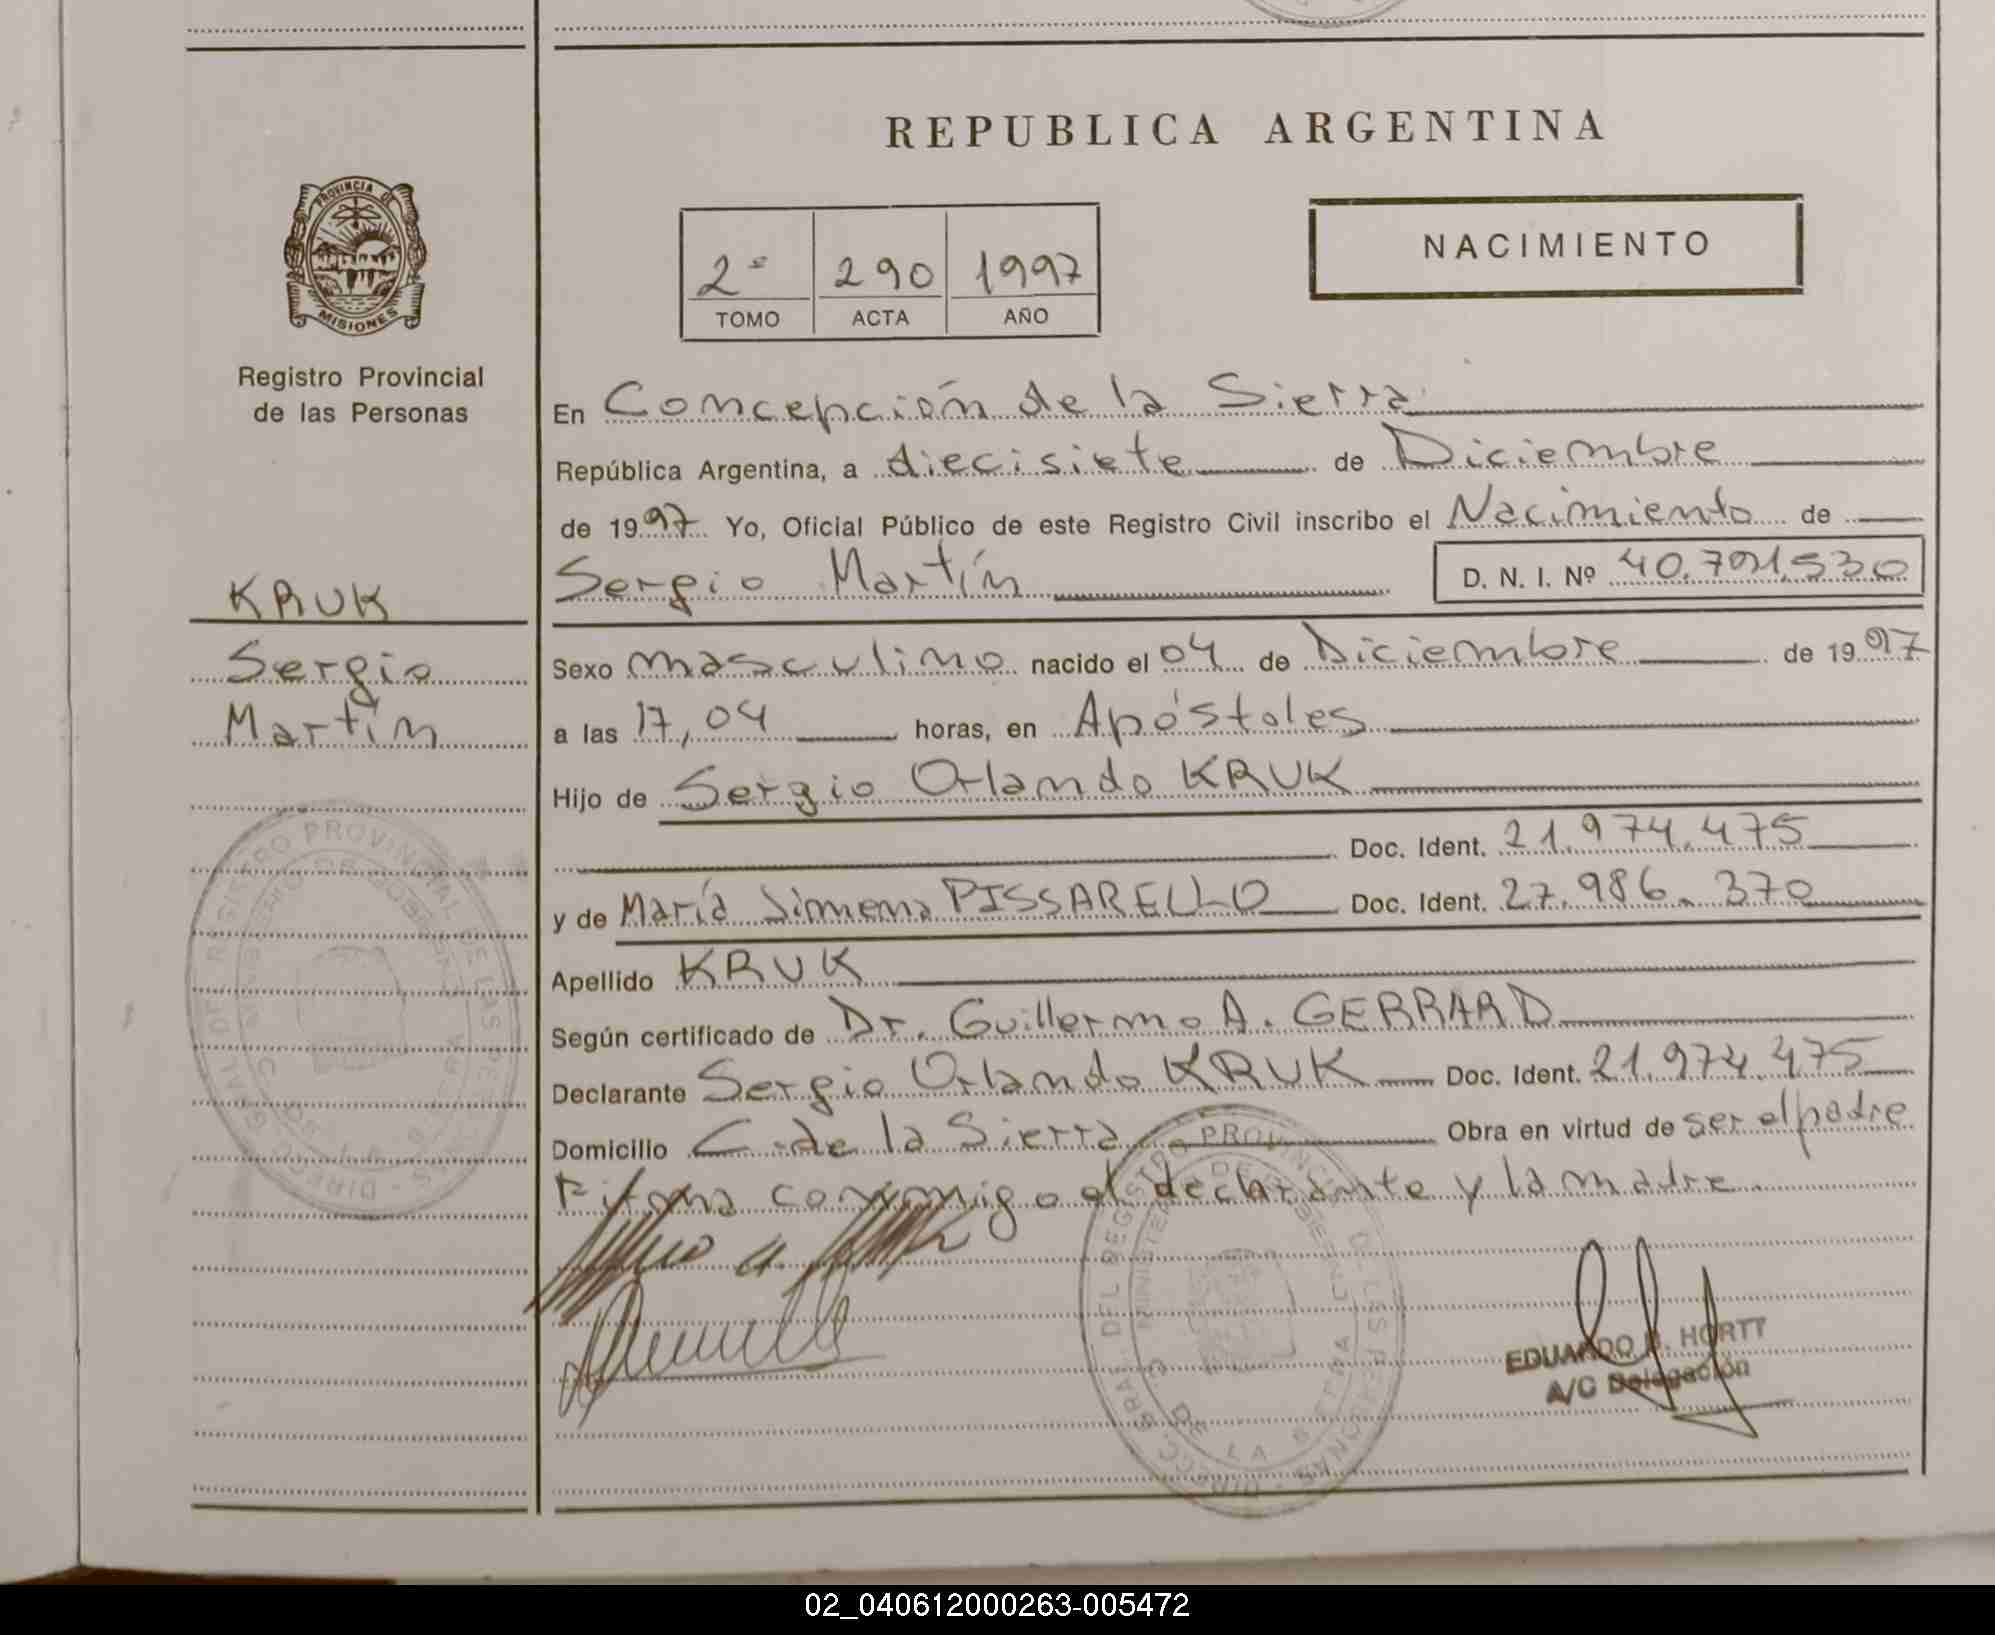 REPUBLICA ARGENTINA
PROVINCIA DE
MISIONES
Registro Provincial
de las Personas
2º 290 1997
TOMO ACTA AÑO
NACIMIENTO
KRUK
Sergio
Martín
En Concepción de la Sierra
República Argentina, a diecisiete de Diciembre
de 1997 Yo, Oficial Público de este Registro Civil inscribo el Nacimiento de
Sergio Martín D. N. I. Nº 40.791.530
Sexo masculino nacido el 04 de Diciembre de 1997
a las 17,04 horas, en Apóstoles
Hijo de Sergio Orlando KRUK
Doc. Ident. 21.974.475
y de María Jimena PISSARELLO Doc. Ident. 27.986.370
Apellido KRUK
Según certificado de Dr. Guillermo A. GERRARD
Declarante Sergio Orlando KRUK Doc. Ident. 21.974.475
Domicilio C. de la Sierra Obra en virtud de ser el padre
Firma conmigo el declarante y la madre.
EDUARDO HORTT
A/C Delegación
02_040612000263-005472